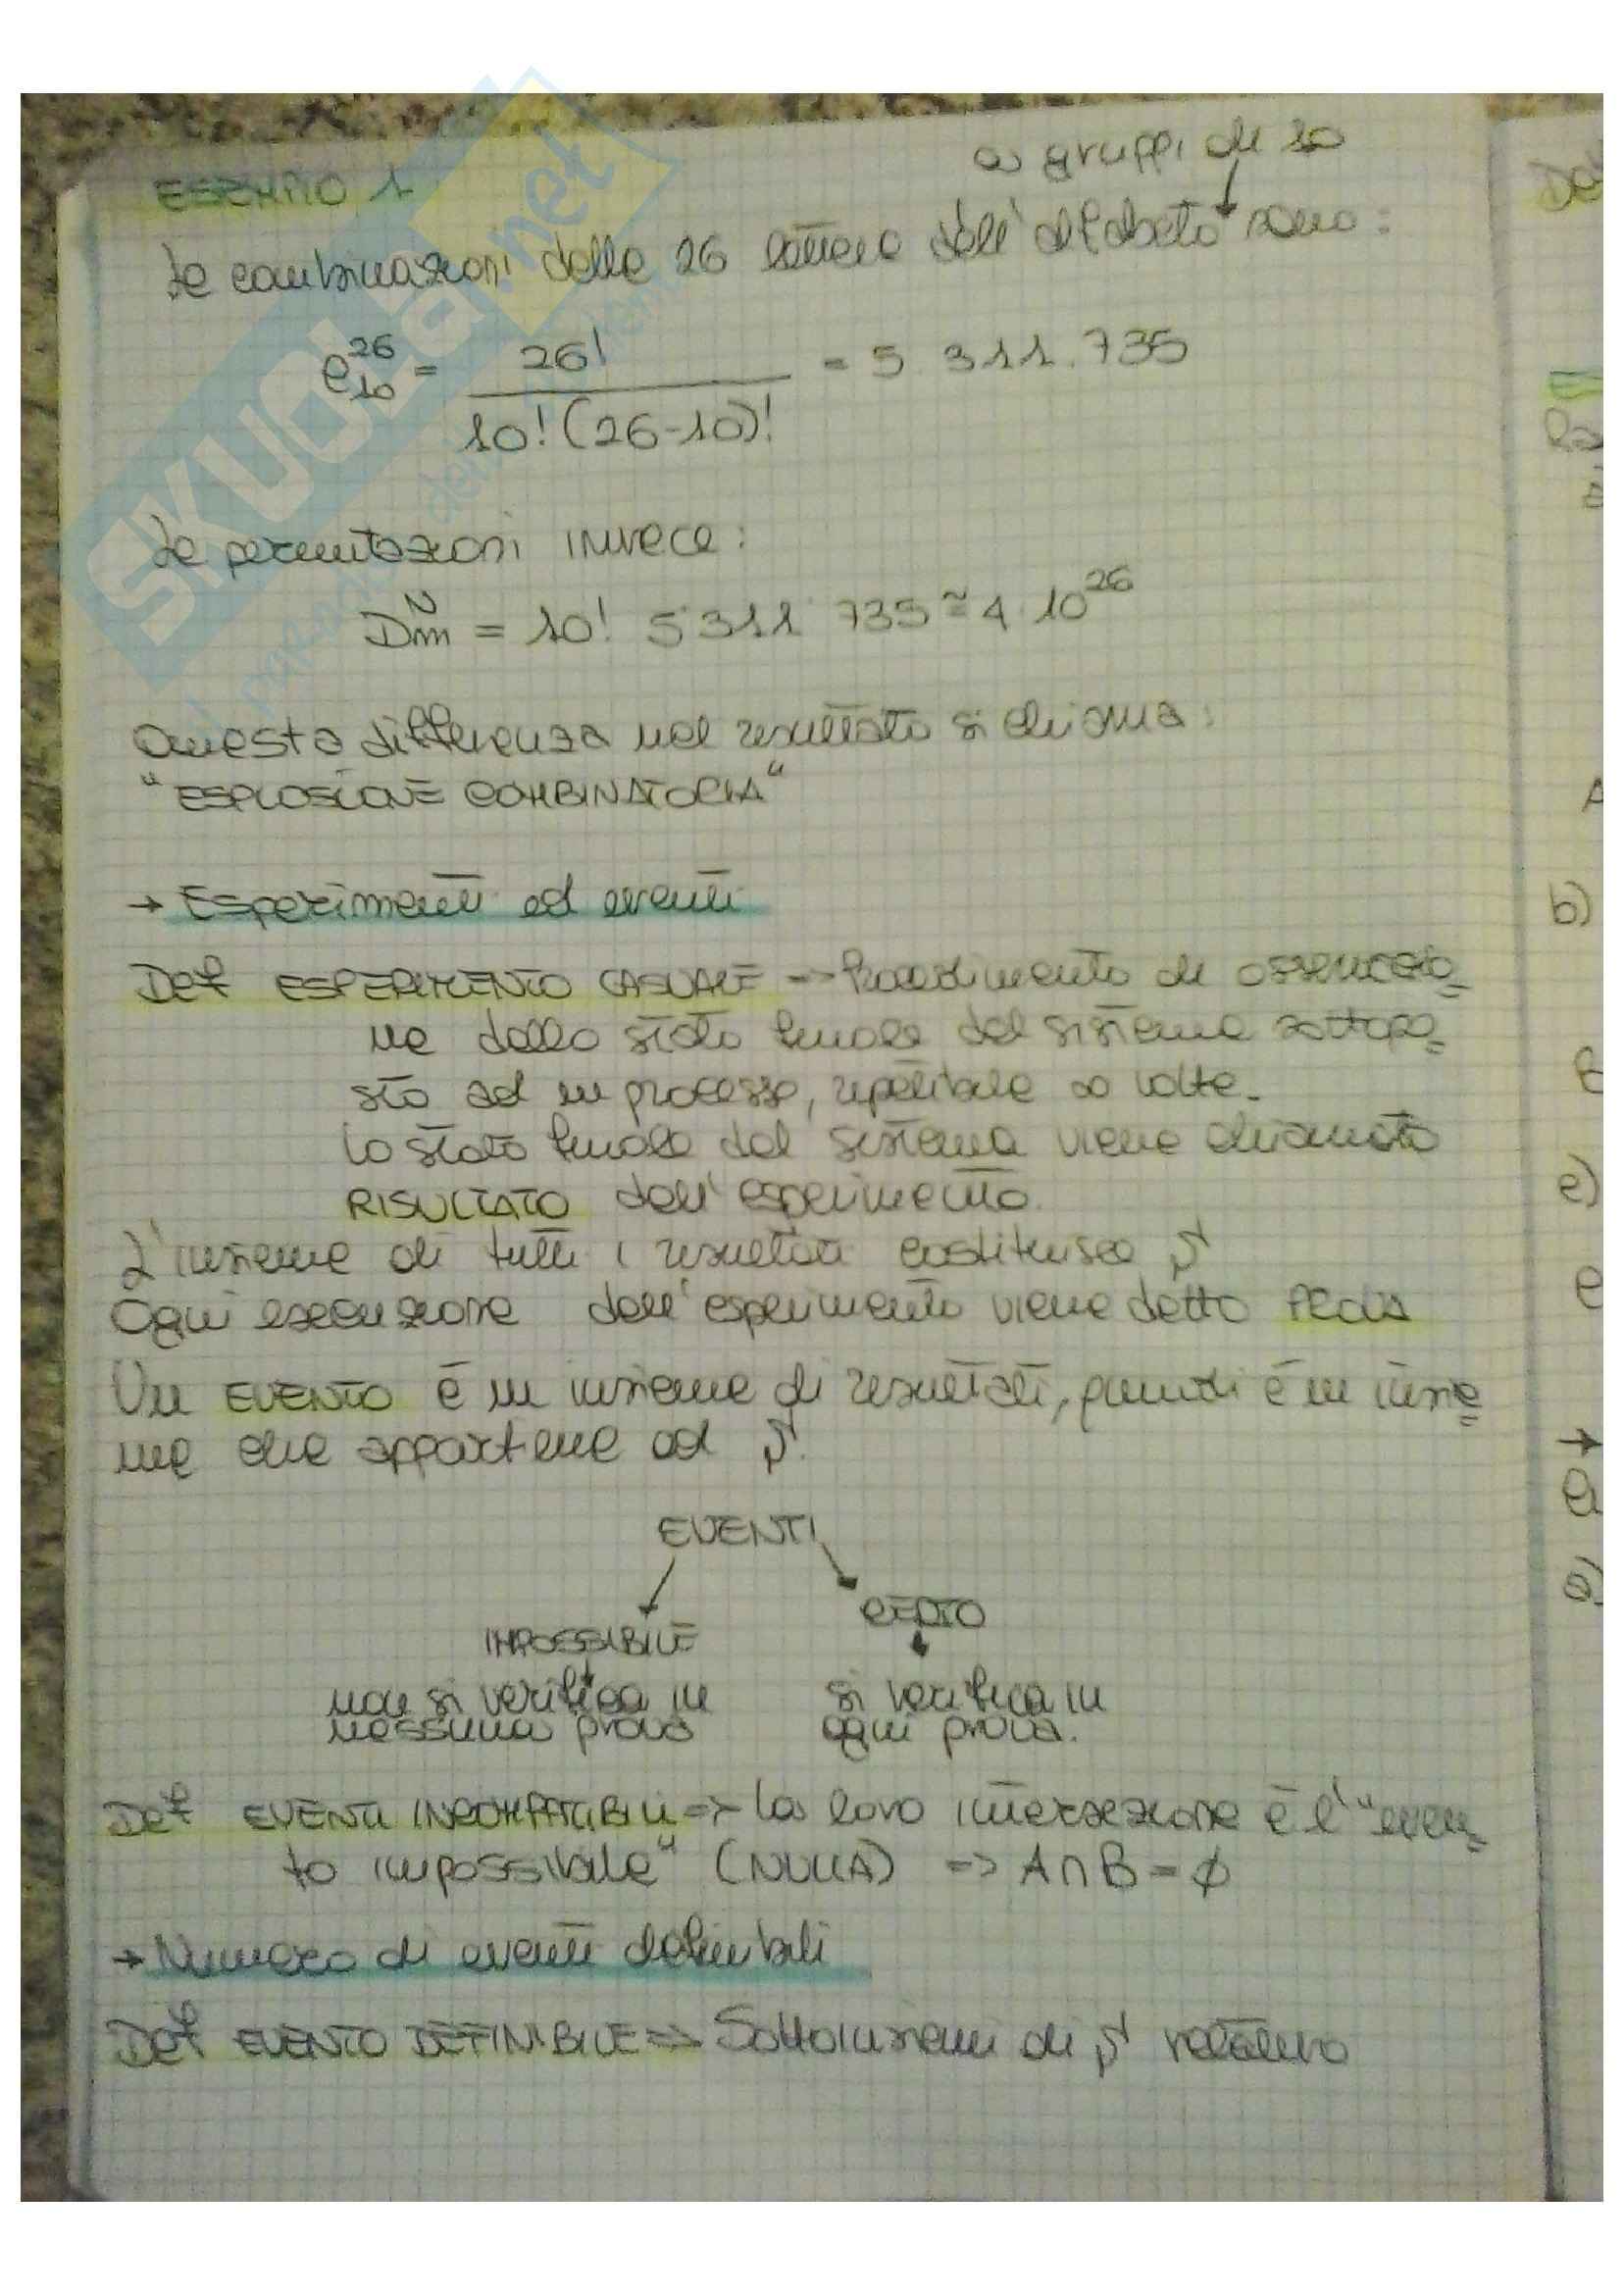 ESEMPIO 1
a gruppi di 10
Le combinazioni delle 26 lettere dell'alfabeto sono:
C 26 10 = 26! / 10!(26-10)! = 5.311.735
Le permutazioni invece:
D N m = 10! 5 311 735 ≃ 4 · 10^26
Questa differenza nel risultato si chiama:
"ESPLOSIONE COMBINATORIA"
→ Esperimenti ed eventi
Def ESPERIMENTO CASUALE => Procedimento di osservazio=
ne dello stato finale del sistema sottopo=
sto ad un processo, ripetibile ∞ volte.
Lo stato finale del sistema viene chiamato
RISULTATO dell'esperimento.
L'insieme di tutti i risultati costituisce S
Ogni esecuzione dell'esperimento viene detto PROVA
Un EVENTO è un insieme di risultati, quindi è un insie=
me che appartiene ad S.
EVENTI
IMPOSSIBILE
CERTO
non si verifica in
nessuna prova
si verifica in
ogni prova.
Def EVENTI INCOMPATIBILI => La loro intersezione è l'"even=
to impossibile" (NULLA) => A∩B = ∅
→ Numero di eventi definibili
Def EVENTO DEFINIBILE => Sottoinsiemi di S relativo
SKUOLA.net